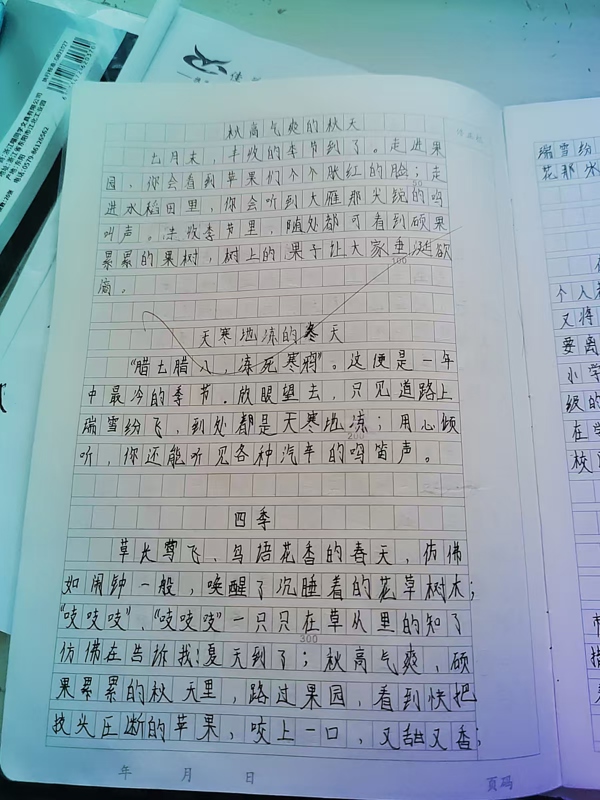 秋高气爽的秋天
七月末，丰收的季节到了。走进果
园，你会看到苹果们个个脥红的脸；走
进水稻田里，你会听到大雁那
叫声。丰收季节里，随处都可看到硕果
累累的果树，树上的果子让大家垂涎欲
滴。
100
天寒地冻的寒天
“腊七腊八，冻死寒鸦”。这便是一年
中最冷的季节．放眼望去，只见道路上
瑞雪纷飞，到处都是天寒地冻；用心倾
200
听，你还能听见各种汽车的鸣笛声。
四季
草长莺飞、鸟语花香的春天，仿佛
如闹钟一般，唤醒了沉睡着的花草树木；
“吱吱吱”、“吱吱吱”一只只在草丛里的知了
300
仿佛在告诉我：夏天到了；秋高气爽、硕
果累累的秋天里，路过果园，看到快把
枝头压断的苹果，咬上一口，又甜又香；
年 月 日
页码
瑞雪纷
花那冰
个人
又将
要离
小学
级的
在学
校